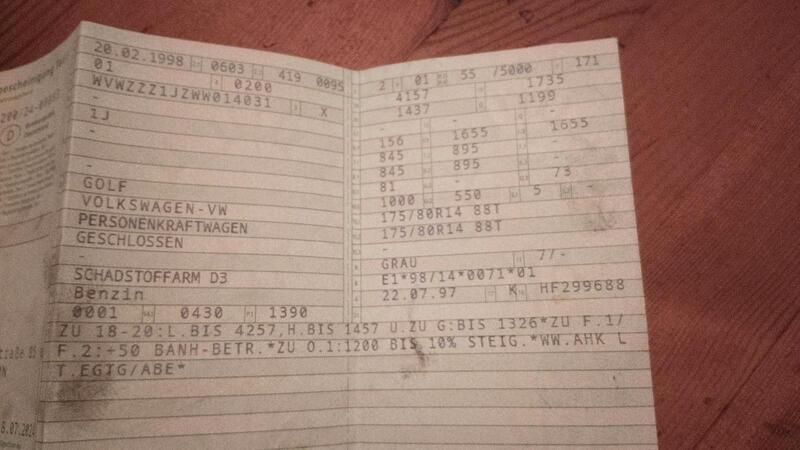 20.02.1998 0603 419 0095
01 0200
WVWZZZ1JZWW014031 X
-
1J
-
-
GOLF
VOLKSWAGEN-VW
PERSONENKRAFTWAGEN
GESCHLOSSEN
-
SCHADSTOFFARM D3
Benzin
0001 0430 1390
2 01 55 /5000 171
4157 1735
1437 1199
- - -
156 1655 1655
845 895 -
845 895 -
81 - 73
1000 550 5 -
175/80R14 88T
175/80R14 88T
-
GRAU 7/-
E1*98/14*0071*01
22.07.97 K HF299688
ZU 18-20:L.BIS 4257,H.BIS 1457 U.ZU G:BIS 1326*ZU F.1/
F.2:+50 BANH-BETR.*ZU O.1:1200 BIS 10% STEIG.*WW.AHK L
T.EGTG/ABE*